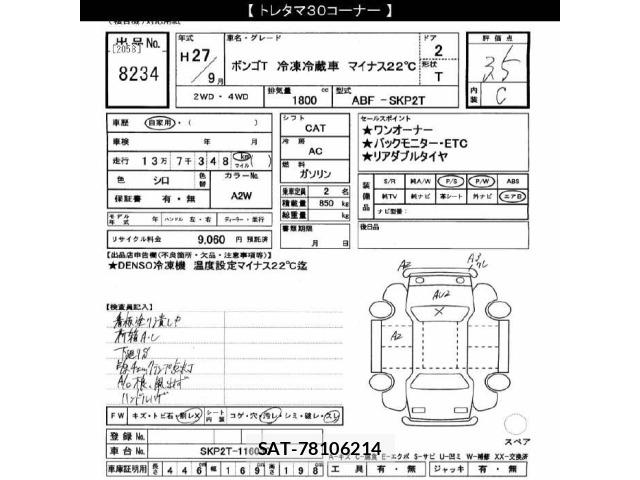 【 トレタマ30コーナー 】
出品No.
[2058]
8234
年式
H27/9月
車名・グレード
ボンゴT 冷凍冷蔵車 マイナス22℃
ドア
2
形状
T
評価点
3.5
内装
C
2WD・4WD
排気量
1800 cc
型式
ABF-SKP2T
車歴 自家用・( )
車検 年 月
走行 13万7千348 km マイル ( )
色 シロ
色替
カラーNo.
A2W
保証書 有・無
モデル年式 年 ハンドル 左・右 ディーラー・並行
リサイクル料金 9,060 円 預託済
シフト
CAT
冷房
AC
燃料
ガソリン
乗車定員 2 名
積載量 850 kg
総重量 kg
書類期限
月 日
セールスポイント
★ワンオーナー
★バックモニター・ETC
★リアダブルタイヤ
装備品
S/R 純A/W P/S P/W ABS
純TV 純ナビ 革シート 外ナビ エアB
ナビ型番:
後日品
【出品店申告欄(不良箇所・欠品・注意事項等)】
★DENSO冷凍機 温度設定マイナス22℃迄
【検査員記入】
A2
A2
FW キズ・トビ石・割レX シート内装 コゲ・穴・汚レ・シミ・破レ・スレ
スペア
登録No.
車台No. SKP2T-1160
SAT-78106214
車庫証明用 長さ 446 幅 169 高さ 198
工具 有・無 ジャッキ 有・無